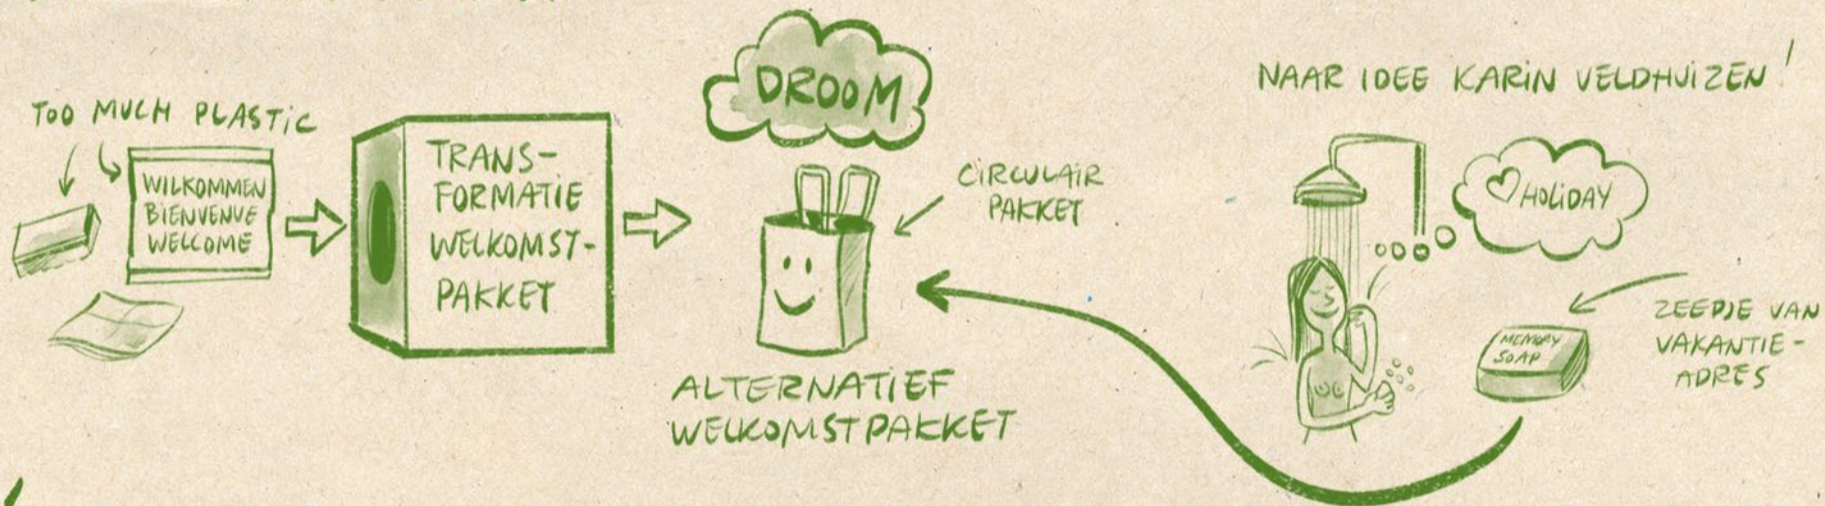 TOO MUCH PLASTIC
WILKOMMEN
BIENVENUE
WELCOME
TRANS-
FORMATIE
WELKOMST-
PAKKET
DROOM
CIRCULAIR
PAKKET
ALTERNATIEF
WELKOMSTPAKKET
NAAR IDEE KARIN VELDHUIZEN!
HOLIDAY
MEMORY
SOAP
ZEEPJE VAN
VAKANTIE-
ADRES